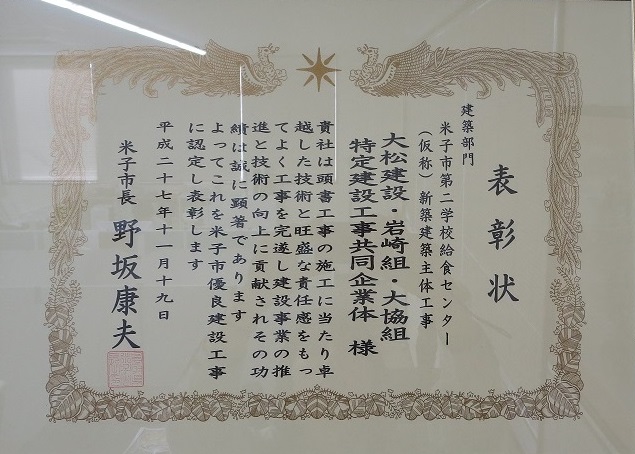 表彰状
建築部門
米子市第二学校給食センター
（仮称）新築建築主体工事
大松建設・岩崎組・大協組
特定建設工事共同企業体 様
貴社は頭書工事の施工に当たり卓
越した技術と旺盛な責任感をもっ
てよく工事を完遂し建設事業の推
進と技術の向上に貢献されその功
績は誠に顕著であります
よってこれを米子市優良建設工事
に認定し表彰します
平成二十七年十一月十九日
米子市長 野坂康夫